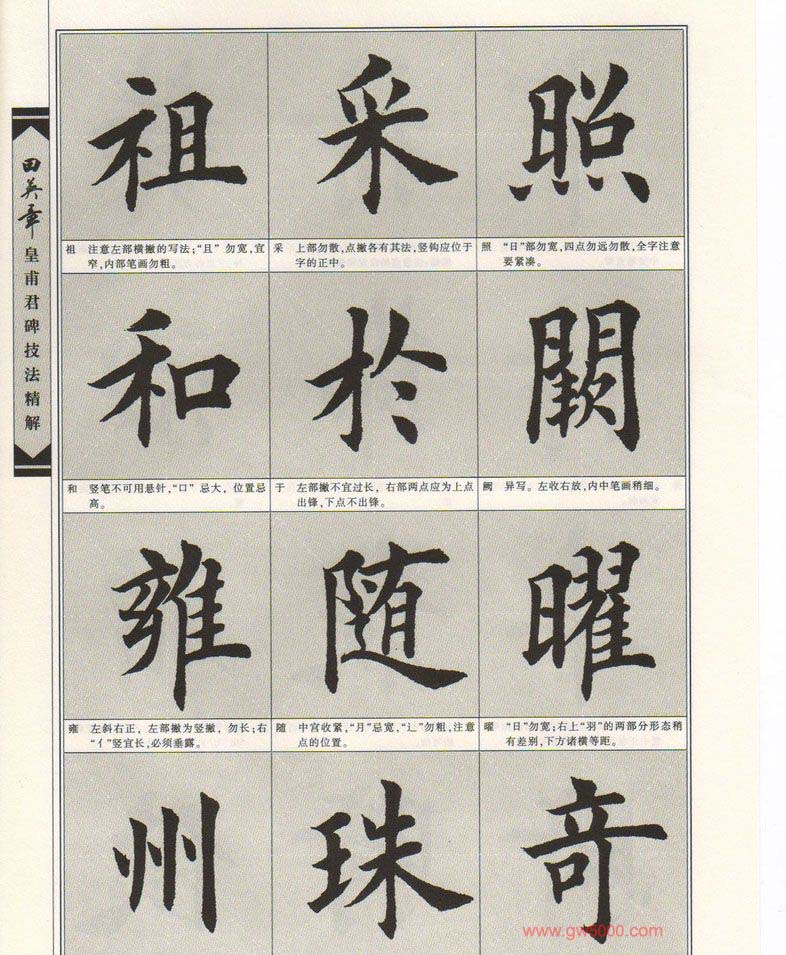 田英章
皇甫君碑技法精解
祖 采 照
祖 注意左部横撇的写法;“且”勿宽,宜
窄,内部笔画勿粗。
采 上部勿散,点撇各有其法,竖钩应位于
字的正中。
照 “日”部勿宽,四点勿远勿散,全字注意
要紧凑。
和 於 闕
和 竖笔不可用悬针,“口”忌大,位置忌
高。
于 左部撇不宜过长,右部两点应为上点
出锋,下点不出锋。
阙 异写。左收右放,内中笔画稍细。
雍 随 曜
雍 左斜右正,左部撇为竖撇,勿长;右
“亻”竖宜长,必须垂露。
随 中宫收紧,“月”忌宽,“辶”勿粗,注意
点的位置。
曜 “日”勿宽;右上“羽”的两部分形态稍
有差别,下方诸横等距。
州 珠 奇
www.gw5000.com